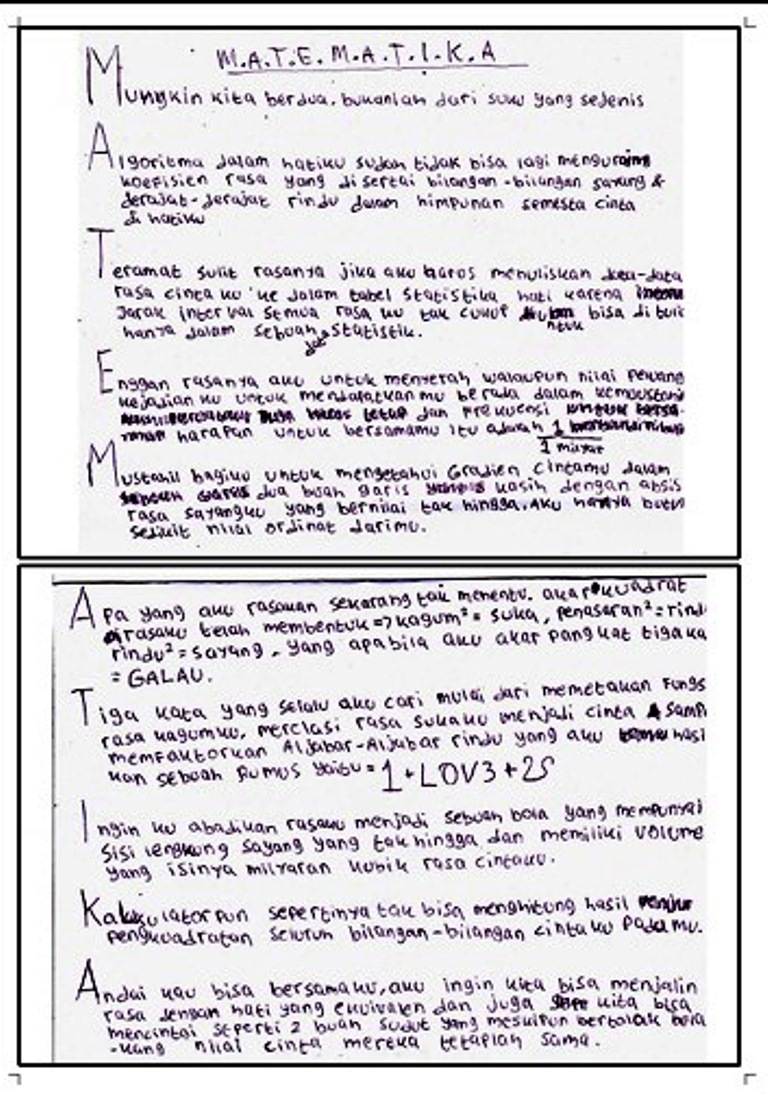 M.A.T.E.M.A.T.I.K.A
Mungkin kita berdua. bukanlah dari suku yang sejenis
Algoritma dalam hatiku sudah tidak bisa lagi
koefisien rasa yang di sertai bilangan-bilangan sayang &
derajat-derajat rindu dalam himpunan semesta cinta
di hatiku
Teramat sulit rasanya jika aku harus menuliskan data-data
rasa cinta ku ke dalam tabel statistika hati karena
Jarak interval semua rasa ku tak cukup bisa di tulis
hanya dalam sebuah statistik.
Enggan rasanya aku untuk menyerah walaupun nilai peluang
kejadian ku untuk mendapatkan mu berada dalam
dan frekuensi
harapan untuk bersamamu itu adalah 1
1 milyar
Mustahil bagiku untuk mengetahui Gradien cintamu dalam
dua buah garis kasih dengan absis
rasa sayangku yang bernilai tak hingga. Aku hanya butuh
sedikit nilai ordinat darimu.
Apa yang aku rasakan sekarang tak menentu. akar kuadrat
rasaku telah membentuk => kagum² = suka, penasaran² = rindu
rindu² = sayang, yang apabila aku akar pangkat tiga ka
= GALAU.
Tiga kata yang selalu aku cari mulai dari memetakan fungs
rasa kagumku, merelasi rasa sukaku menjadi cinta & samp
memfaktorkan Aljabar-Aljabar rindu yang aku hasi
kan sebuah Rumus yaitu = 1 + LOV3 + 2S
Ingin ku abadikan rasaku menjadi sebuah bola yang mempunyai
sisi lengkung sayang yang tak hingga dan memiliki volume
yang isinya milyaran kubik rasa cintaku.
Kalkulator pun sepertinya tak bisa menghitung hasil
pengkuadratan seluruh bilangan-bilangan cinta ku padamu.
Andai kau bisa bersamaku, aku ingin kita bisa menjalin
rasa dengan hati yang ekuivalen dan juga kita bisa
mencintai seperti 2 buah sudut yang meskipun bertolak bela
-kang nilai cinta mereka tetaplah sama.